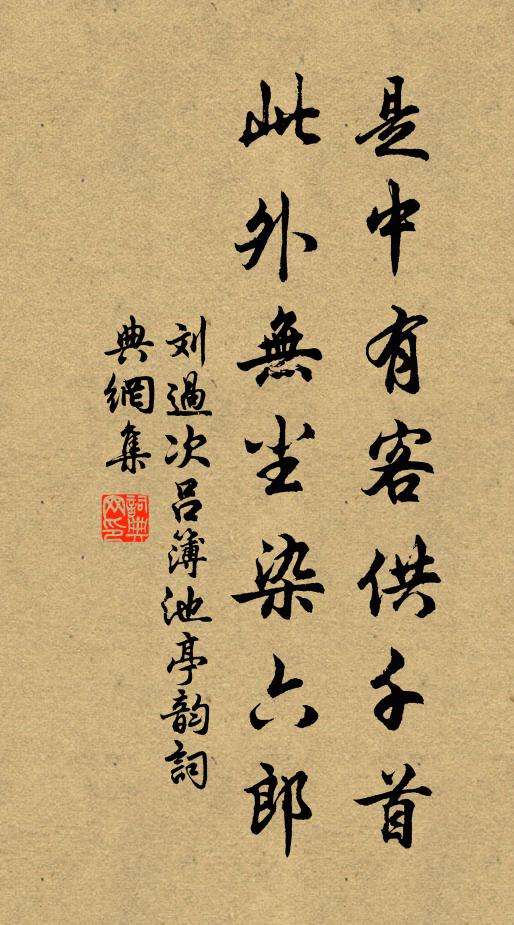 是中有客供千首
此外無尘染六郎
刘過次呂簿池亭韵詞
典網集
詞典網印